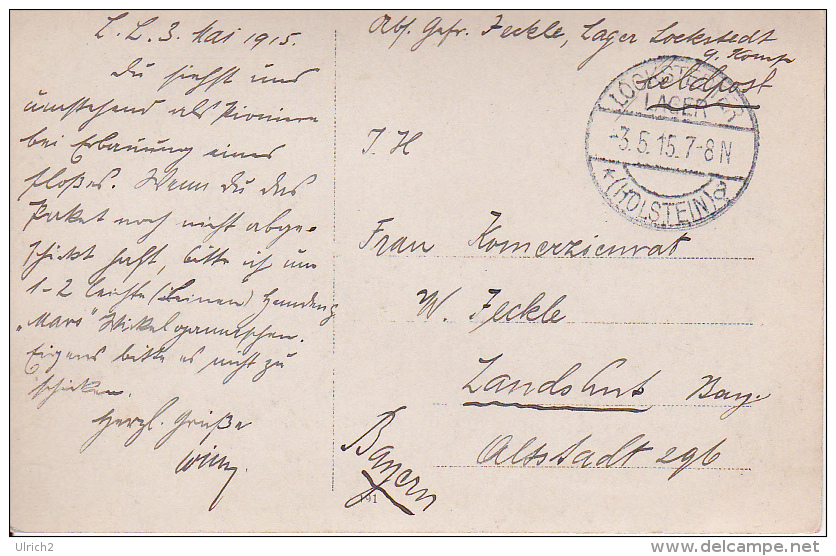 L. L. 3. Mai 1915.
Du siehst uns
umstehend als Pioniere
bei Erbauung eines
Floßes. Wenn Du das
Paket noch nicht abge-
schickt hast, bitte ich um
1-2 leichte (Leinen) Hemden &
"Mars" Wickelgamaschen.
Eigens bitte es nicht zu
schicken.
Herzl. Grüße
Willy.
Abs. Gefr. Feckle, Lager Lockstedt
9. Komp
Feldpost
LOCKSTEDTER
LAGER
-3.5.15.7-8N
*(HOLSTEIN)a
I. H
Frau Komerzienrat
W. Feckle
Landshut Bay.
Altstadt 296
Bayern
191
Ulrich2
delcampe.net